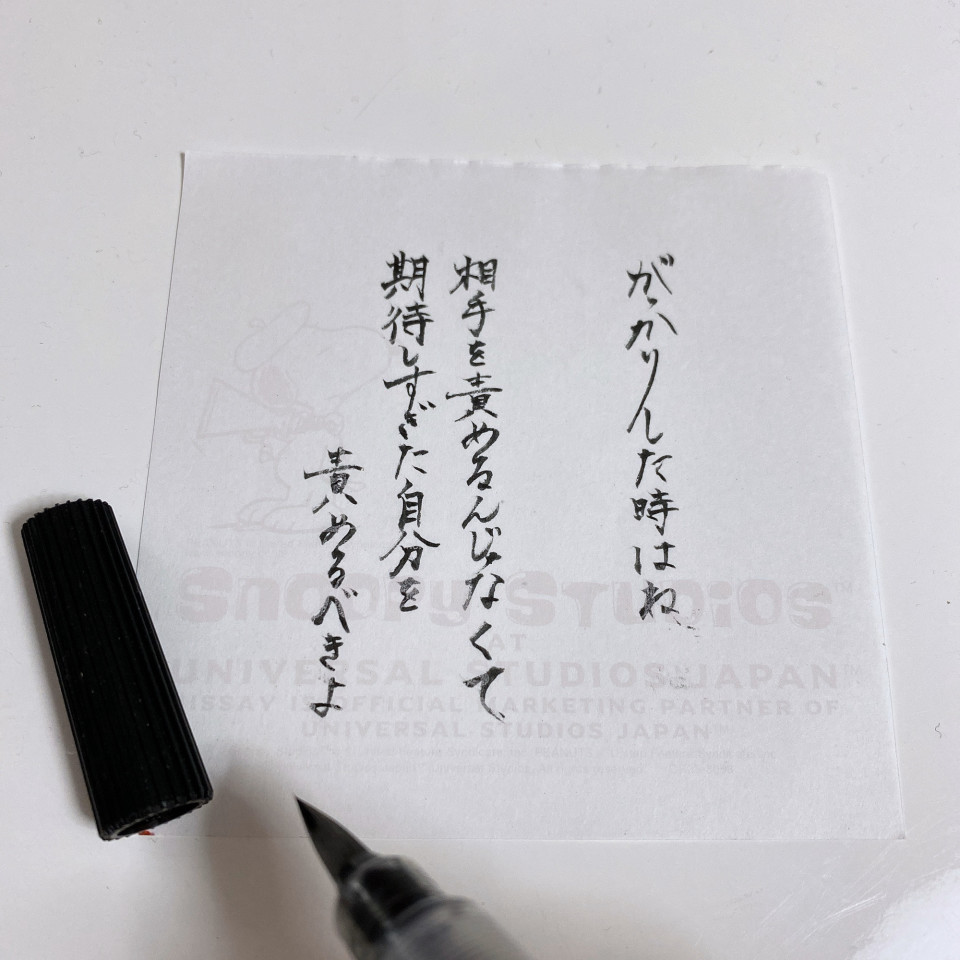 がっかりした時はね、
相手を責めるんじゃなくて、
期待しすぎた自分を
責めるべきよ
SNOOPY STUDIOS
AT
UNIVERSAL STUDIOS JAPAN™
NISSAY IS OFFICIAL MARKETING PARTNER OF
UNIVERSAL STUDIOS JAPAN™